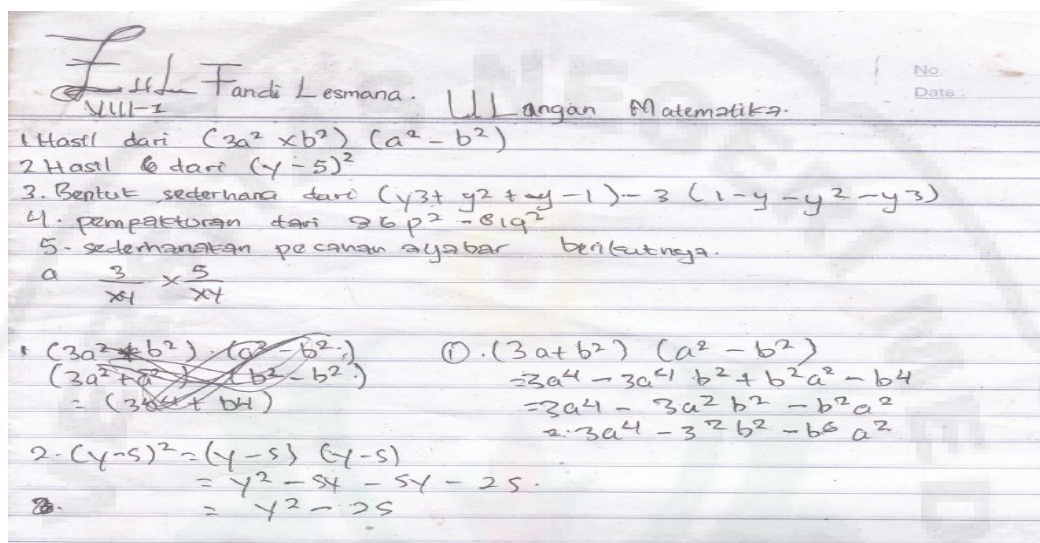 Fandi Lesmana. ULangan Matematika.
VIII-1
No.
Date.
1 Hasil dari (3a² x b²) (a² - b²)
2 Hasil dari (y - 5)²
3. Bentuk sederhana dari (y3 + y2 + y - 1) - 3 (1 - y - y2 - y3)
4. pempaktoran dari 36p² - 81q²
5. sederhanakan pecahan ayabar berikutnya.
a 3/xy x 5/xy
1 (3a² + b²) . (a² - b²)
(3a² + a²) (b² - b²)
= (3a4 + b4)
① . (3a + b²) (a² - b²)
= 3a4 - 3a4 b² + b²a² - b4
= 3a4 - 3a² b² - b²a²
= 3a4 - 3² b² - b6 a²
2. (y-5)² = (y-5) (y-5)
= y² - 5y - 5y - 25.
= y² - 25
3.